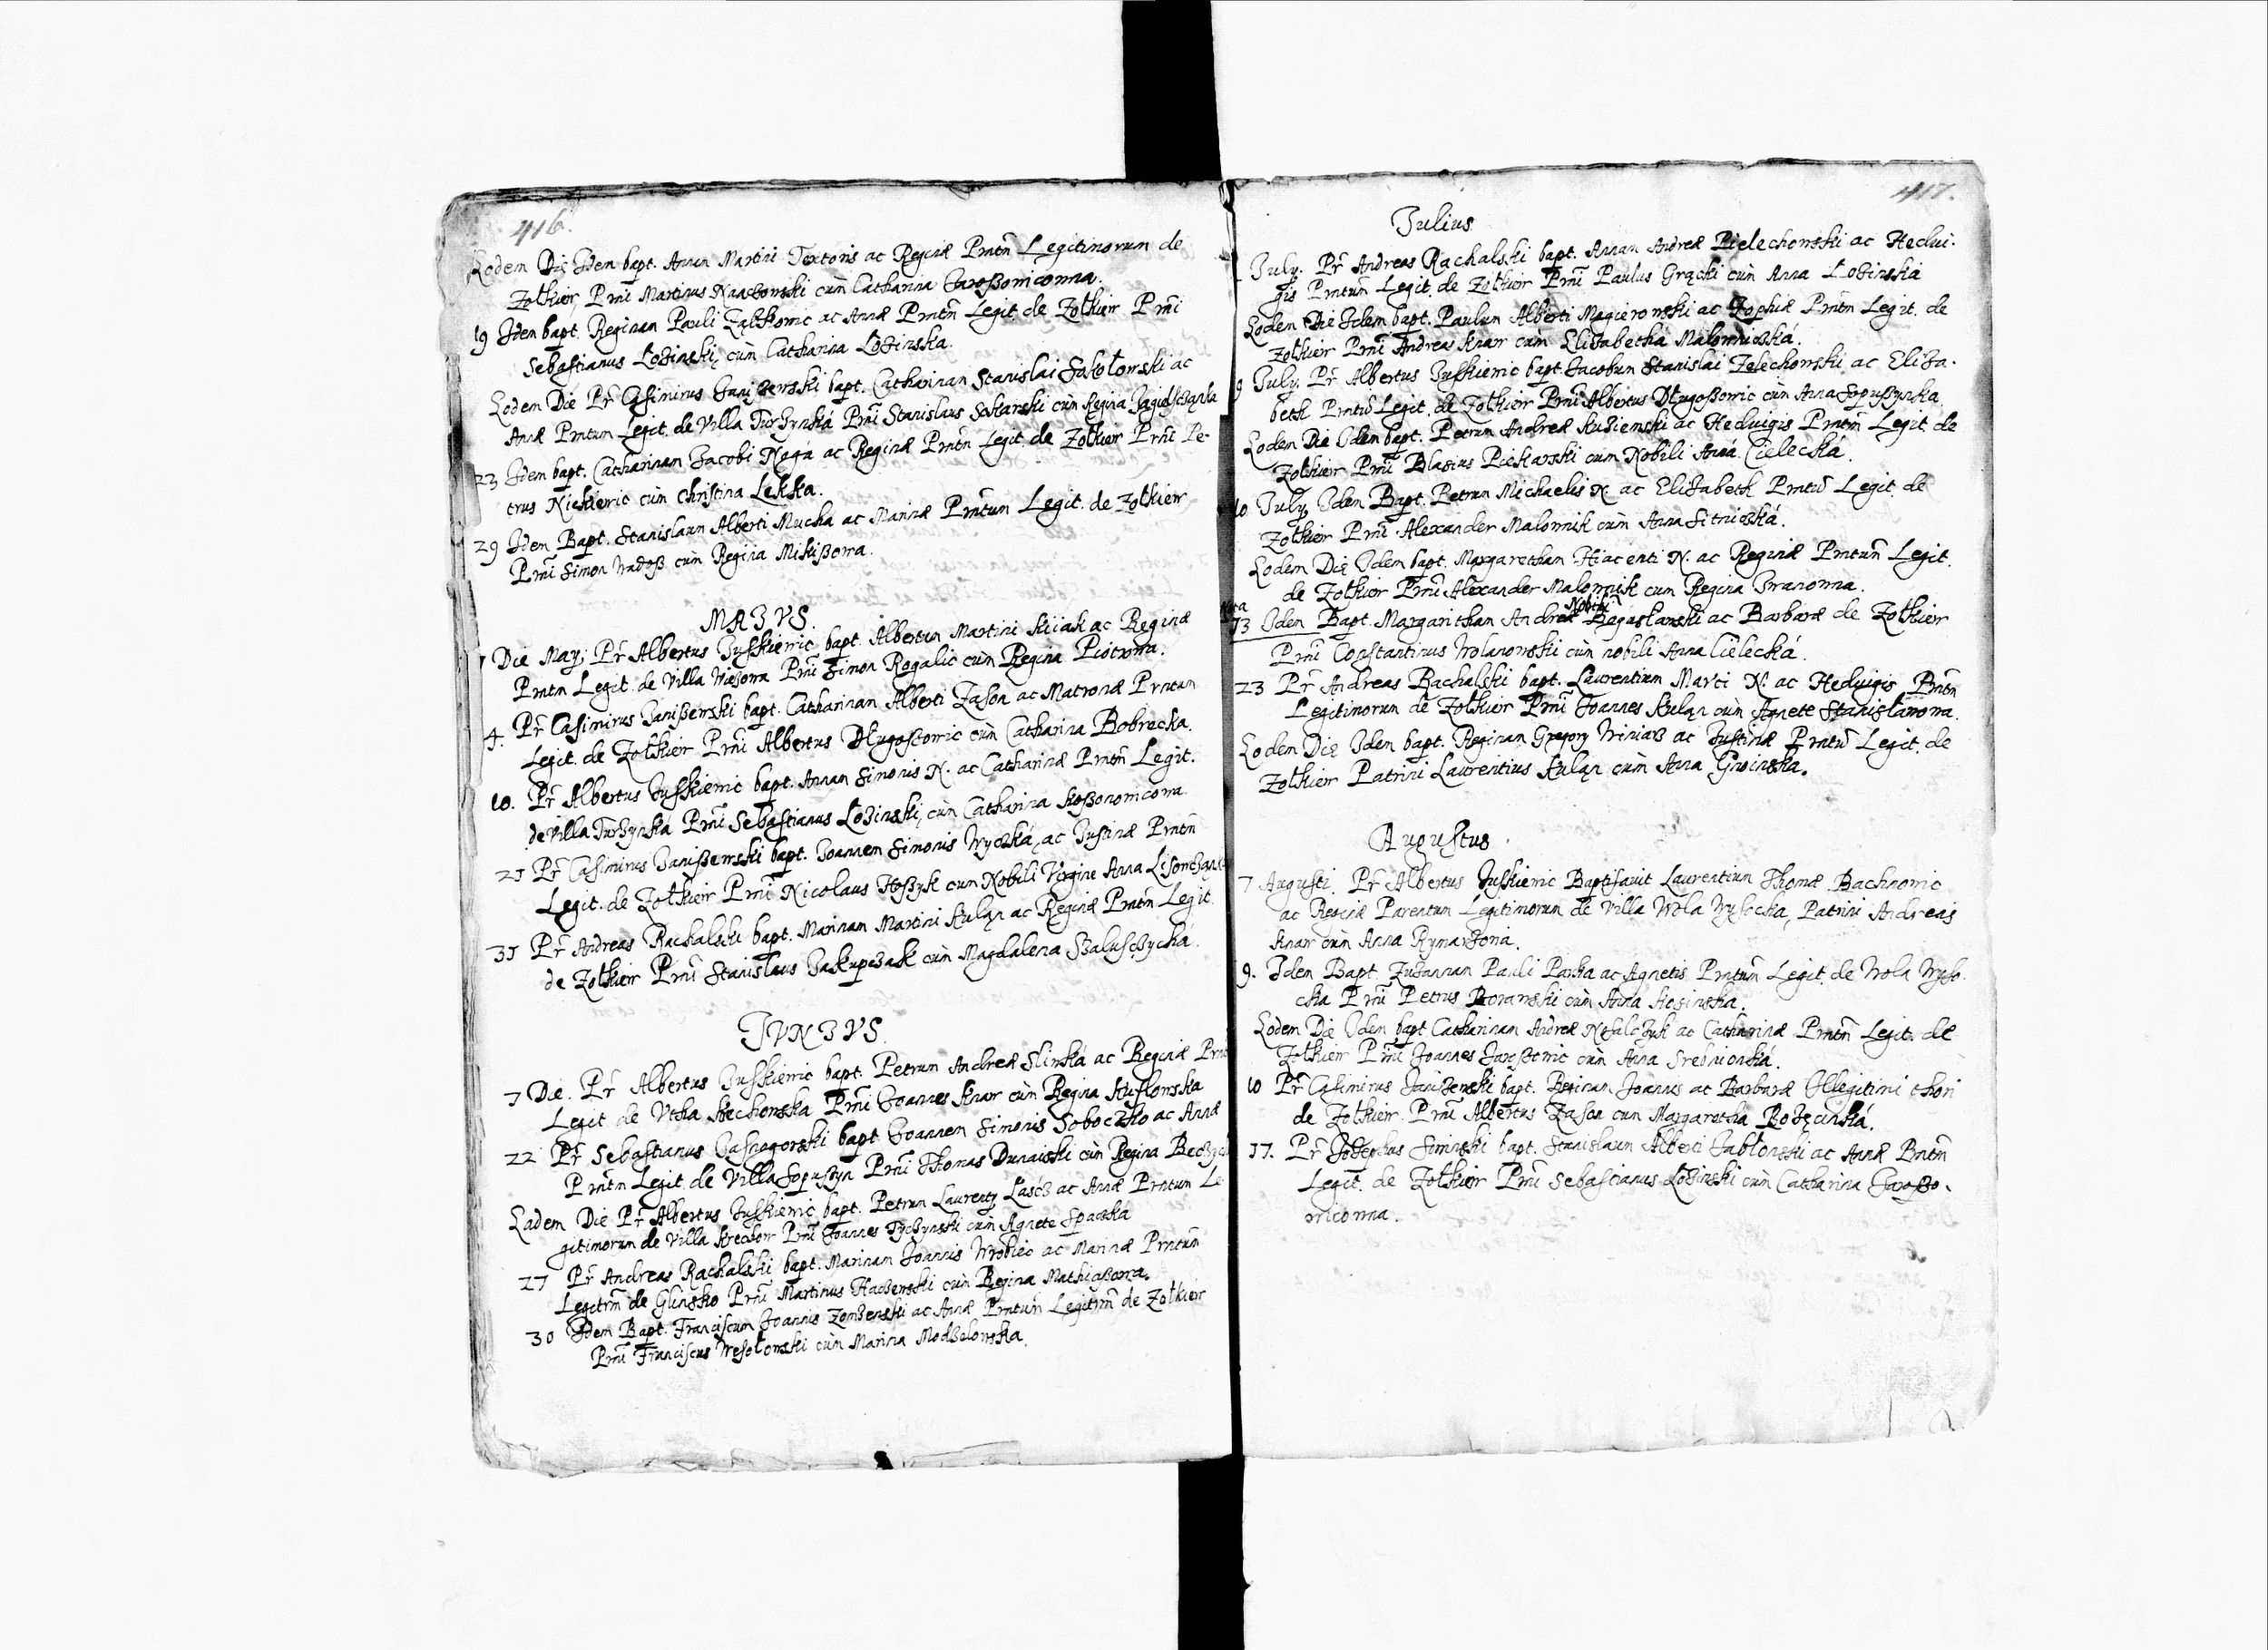 416.
Eodem Die Idem bapt. Annam Martini Textoris ac Reginæ Prntm Legitimorum de
Zołkiew, Prni Martinus Catharina Jaroßowicowna.
19 Idem bapt. Reginam Pauli ac Annæ Prntm Legit. de Zołkiew Prni
Sebastianus Łozinski, cum Catharina Łozinska.
Eodem Die Pr Casimirus Janißewski bapt. Catharinam Stanislai Sokołowski ac
Annæ Prntum Legit. de Villa Turzynka Prni Stanislaus cum Regina
23 Idem bapt. Catharinam Jacobi Noga ac Reginæ Prntm Legit. de Zołkiew Prni Pe-
trus Nickiewic cum Christina Lekka.
29 Idem Bapt. Stanislaum Alberti Mucha ac Marinæ Prntum Legit. de Zołkiew
Prni Simon cum Regina Mikißowa.
MAIVS.
1 Die May, Pr Albertus Juskiewic bapt. Albertum Martini Kiiak ac Reginæ
Prntm Legit. de Villa Prni Simon Rogalic cum Regina Piotrowa.
4. Pr Casimirus Janißewski bapt. Catharinam Alberti Zason ac Matronæ Prntum
Legit. de Zołkiew Prni Albertus Długoßowic cum Catharina Bobrecka.
10. Pr Albertus Juskiewic bapt. Annam Simonis N. ac Catharinæ Prntm Legit.
de Villa Turzynka Prni Sebastianus Łozinski, cum Catharina
21 Pr Casimirus Janißewski bapt. Joannem Simonis ac Justinæ Prntm
Legit. de Zołkiew Prni Nicolaus cum Nobili Virgine Anna
31 Pr Andreas Rachalski bapt. Marinam Martini Kuląn ac Reginæ Prntm Legit.
de Zołkiew Prni Stanislaus Jakupczak cum Magdalena
IVNIVS.
7 Die. Pr Albertus Juskiewic bapt. Petrum Andreæ Slinka ac Reginæ
Legit de Prni Joannes Knaw cum Regina
22 Pr Sebastianus Jasnogorski bapt. Joannem Simonis Soboczko ac Annæ
Prntm Legit. de Villa Sopußyn Prni Thomas Dunaiski cum Regina
Eadem Die Pr Albertus Juskiewic bapt. Petrum Laurenty ac Annæ Prntum Le
gitimorum de Villa Prni Joannes cum Agnete
27 Pr Andreas Rachalski bapt. Marinam Joannis ac Marinæ Prntum
Legitim de Glinsko Prni Martinus cum Regina Mathiaßowa.
30 Idem Bapt. Franciscum Joannis ac Annæ Prntum Legitim de Zołkiew
Prni Franciscus Wesołowski cum Marina Modzelowska.
417.
Julius
July. Pr Andreas Rachalski bapt. Annam Andreæ Pielechowski ac Hedui-
gis Prntum Legit. de Zołkiew Prni Paulus Grącki cum Anna Łozinska
Eodem Die Idem bapt. Paulum Alberti Magierowski ac Zophiæ Prntm Legit. de
Zołkiew Prni Andreas Knaw cum Elizabetha
9 July. Pr Albertus Juskiewic bapt. Jacobum Stanislai Zelechowski ac Eliza-
beth Prntū Legit. de Zołkiew Prni Albertus Długoßowic cum Anna Sopußynska.
Eodem Die Idem bapt. Petrum Andreæ ac Hedvigis Prntm Legit. de
Zołkiew Prni Blasius Piekarski cum Nobili Anna Cielecka.
10 July, Idem Bapt. Petrum Michaelis N. ac Elizabeth Prntū Legit. de
Zołkiew Prni Alexander Malownik cum Anna
Eodem Die Idem bapt. Margaretham Hiacenti N. ac Reginæ Prntum Legit.
de Zołkiew Prni Alexander Malownik cum Regina Iwanowa.
Nobili
13 Idem Bapt. Margaritham Andreæ ac Barbaræ de Zołkiew
Prni Constantinus Wolanowski cum nobili Anna Cielecka.
23 Pr Andreas Rachalski bapt. Laurentium Marci N. ac Hedvigis Prntm
Legitimorum de Zołkiew Prni Joannes Kuląn cum Agnete Stanisławowa.
Eodem Die Idem bapt. Reginam Gregory ac Justinæ Prntū Legit. de
Zołkiew Patrini Laurentius Kuląn cum Anna Gnoinska.
Augustus
7 Augusti. Pr Albertus Juskiewic Baptisavit Laurentium Thomæ Bachnowic
ac Reginæ Parentum Legitimorum de Villa Wola Wysocka, Patrini Andreas
Knaw cum Anna Rymarzowa.
9. Idem Bapt. Zuzannam Pauli ac Agnetis Prntum Legit. de Wola Wyso-
cka Prni Petrus Borawski cum Anna
Eodem Die Idem bapt Catharinam Andreæ ac Catharinæ Prntm Legit. de
Zołkiew Prni Joannes Jaroßowic cum Anna
10 Pr Casimirus Janißewski bapt. Reginam Joannis ac Barbaræ Illegitimi thori
de Zołkiew. Prni Albertus Zason cum Margaretha
17. Pr Josephus bapt. Stanislaum Alberti Jabłonski ac Annæ Prntm
Legit. de Zołkiew Prni Sebastianus Łozinski cum Catharina Jaroßo-
wicowna.